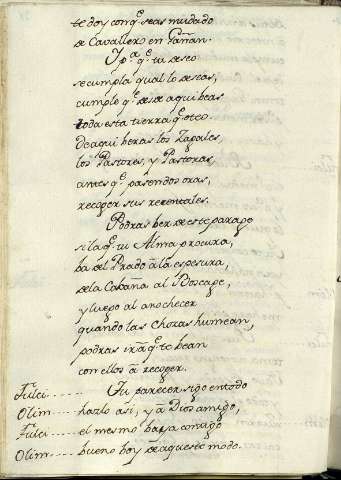 te doy con q.e seas mudado
de Cavallero en Gañan.
Y p.a q.e tu deseo
se cumpla qual lo deseas,
cumple q.e desde aqui beas
toda esta tierra q.e oteo.
De aqui beras los Zagales,
los Pastores, y Pastoras,
antes q.e pasen dos oras,
recoger sus recentales.
Podras ber de este parage
si la q.e tu Alma procura,
ba del Prado â la espesura,
de la Cabaña al Boscage,
y luego al anochecer
quando las Chozas humean,
podras ir â q.e te bean
con ellos â recoger.
Fulci..... Tu parecer sigo en todo
Olim..... hazlo asi, y â Dios amigo,
Fulci..... el mesmo baya contigo
Olim..... bueno boy de aqueste modo.